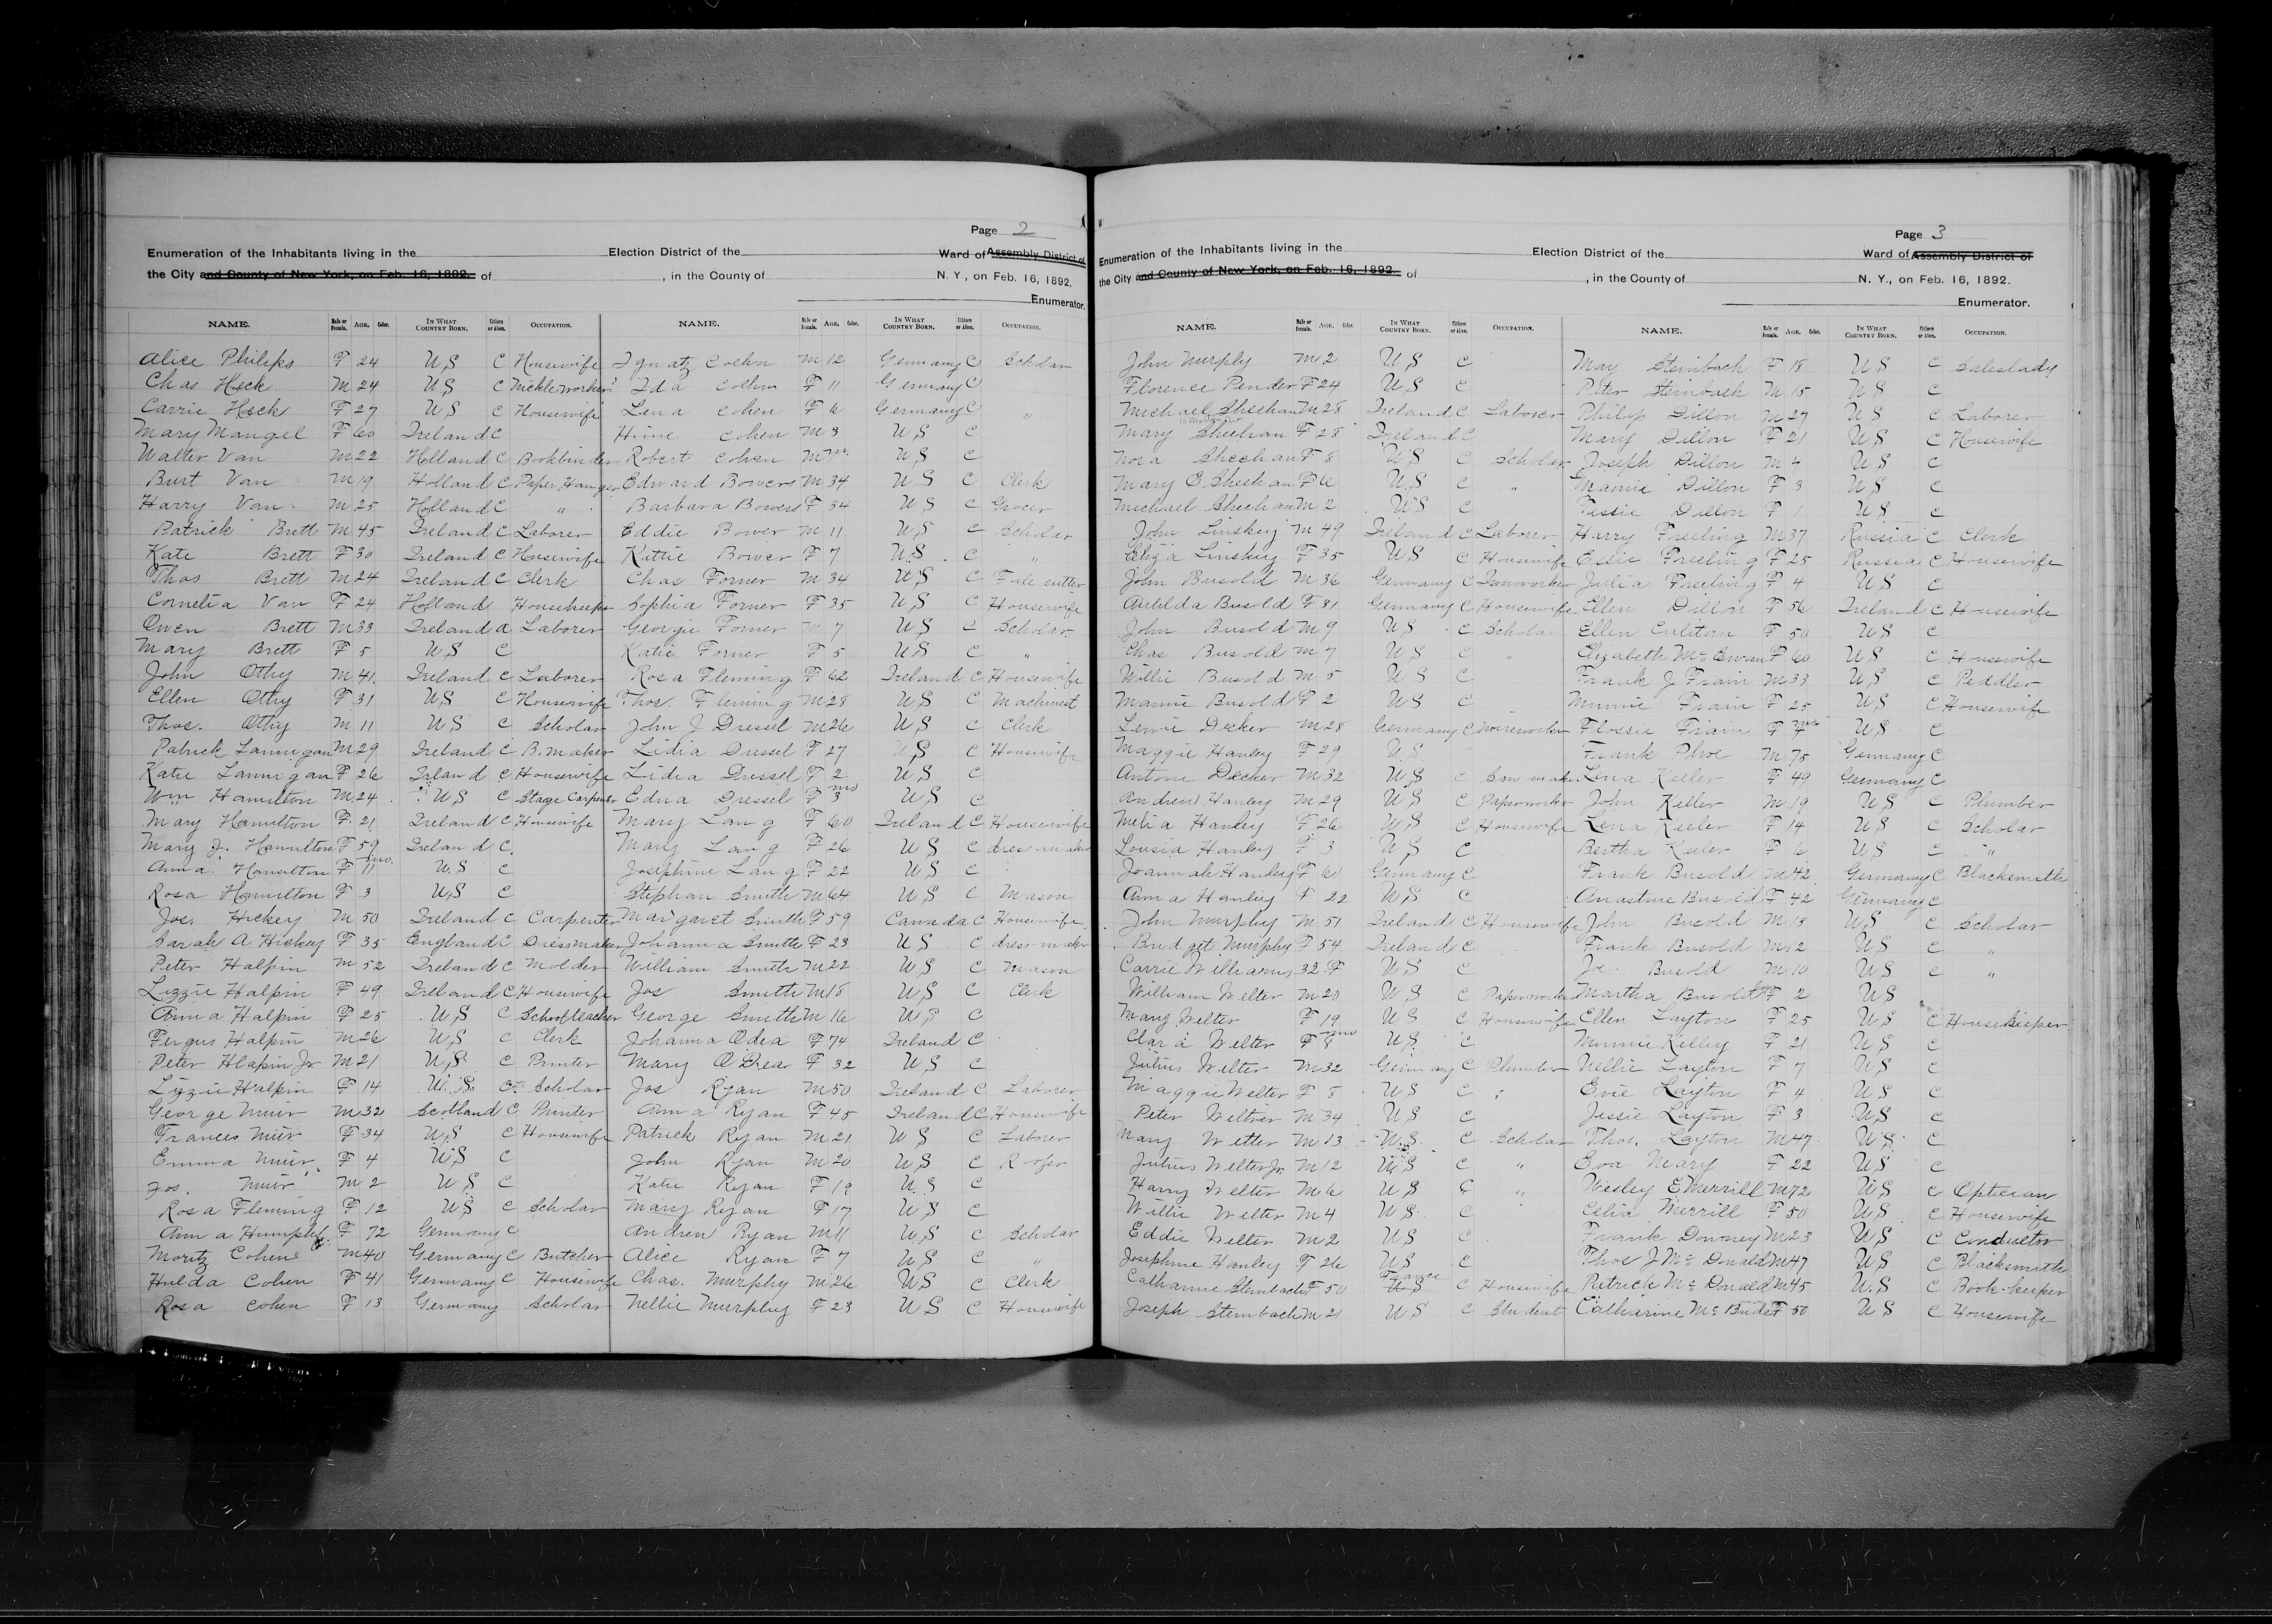 Page 2
Enumeration of the Inhabitants living in the Election District of the Ward of Assembly District of
the City and County of New York, on Feb. 16, 1892. of , in the County of N. Y., on Feb. 16, 1892.
Enumerator.
NAME. Male or Female. AGE. Color. IN WHAT COUNTRY BORN. Citizen or Alien. OCCUPATION.
Alice Philips F 24 U S C Housewife
Chas Heck M 24 U S C Nickleworker
Carrie Heck F 27 U S C Housewife
Mary Mangel F 60 Ireland C
Walter Van M 22 Holland C Bookbinder
Burt Van M 19 Holland C Paper Hanger
Harry Van M 25 Holland C "
Patrick Brett M 45 Ireland C Laborer
Kate Brett F 30 Ireland C Housewife
Thos Brett M 24 Ireland C Clerk
Cornelia Van F 24 Holland Housekeeper
Owen Brett M 33 Ireland a Laborer
Mary Brett F 5 U S C
John Othy M 41 Ireland C Laborer
Ellen Othy F 31 U S C Housewife
Thos. Othy M 11 U S C Scholar
Patrick Lannigan M 29 Ireland C B. maker
Katie Lannigan F 26 Irland C Housewife
Wm Hamilton M 24 U S C Stage Carpenter
Mary Hamilton F 21 Ireland C Housewife
Mary J. Hamilton F 59 Ireland C
Anna Hamilton F 11 mo. U S C
Rosa Hamilton F 3 U S C
Jos. Hickey M 50 Ireland C Carpenter
Sarah A Hickey F 35 England C Dressmaker
Peter Halpin M 52 Ireland C Molder
Lizzie Halpin F 49 Ireland C Housewife
Anna Halpin F 25 U S C Schoolteacher
Fergus Halpin M 26 U S C Clerk
Peter Hlapin Jr M 21 U S C Printer
Lizzie Halpin F 14 U. S. C Scholar
George Muir M 32 Scotland C Printer
Frances Muir F 34 U S C Housewife
Emma Muir F 4 U S C
Jos. Muir M 2 U S C
Rosa Fleming F 12 U S C Scholar
Anna F 72 Germany C
Moritz Cohen M 40 Germany C Butcher
Hulda Cohen F 41 Germany C Housewife
Rosa Cohen F 13 Germany Scholar
NAME. Male or Female. AGE. Color. IN WHAT COUNTRY BORN. Citizen or Alien. OCCUPATION.
Ignatz Coehn M 12 Germany C Scholar
Ida Coehn F 11 Germany C "
Lena Cohen F 6 Germany C "
Hime Cohen M 3 U S C
Robert Cohen M U S C
Edward Bowers M 34 U S C Clerk
Barbara Bowers F 34 U S C Grocer
Eddie Bower M 11 U S C Scholar
Kittie Bower F 7 U S C "
Chas Forner M 34 U S C File cutter
Sophia Forner F 35 U S C Housewife
Georgie Forner M 7 U S C Scholar
Katie Forner F 5 U S C "
Rosa Fleming F 62 Ireland C Housewife
Thos. Fleming M 28 U S C Machinest
John J Dressel M 26 U S C Clerk
Lidia Dressel F 27 U S C Housewife
Lidia Dressel F 2 U S C
Edna Dressel F 3 mo U S C
Mary Lang F 60 Ireland C Housewife
Mary Lang F 26 U S C dress maker
Josephine Lang F 22 U S C
Stephan Smith M 64 U S C Mason
Margaret Smith F 59 Canada C Housewife
Johanna Smith F 23 U S C dress maker
William Smith M 22 U S C Mason
Jos Smith M 18 U S C Clerk
George Smith M 16 U S C
Johanna Odea F 74 Ireland C
Mary O Drea F 32 U S C
Jos Ryan M 50 Ireland C Laborer
Anna Ryan F 45 Ireland C Housewife
Patrick Ryan M 21 U S C Laborer
John Ryan M 20 U S C Roofer
Katie Ryan F 19 U S C
Mary Ryan F 17 U S C
Andrew Ryan M 11 U S C Scholar
Alice Ryan F 7 U S C "
Chas. Murphy M 26 U S C Clerk
Nellie Murphy F 23 U S C Housewife
Page 3
Enumeration of the Inhabitants living in the Election District of the Ward of Assembly District of
the City and County of New York, on Feb. 16, 1892. of , in the County of N. Y., on Feb. 16, 1892.
Enumerator.
NAME. Male or Female. AGE. Color. IN WHAT COUNTRY BORN. Citizen or Alien. OCCUPATION.
John Murphy M 2 U S C
Florence Pender F 24 U S C
Michael Sheehan M 28 Ireland C Laborer
Mary Sheehan F 28 Ireland C
Nora Sheehan F 8 U S C Scholar
Mary E Sheehan F 6 U S C "
Michael Sheehan M 2 U S C
John Linskey M 49 Ireland C Laborer
Eliza Linskey F 35 U S C Housewife
John Busold M 36 Germany C Ironworker
Atilda Busold F 31 Germany C Housewife
John Busold M 9 U S C Scholar
Chas Busold M 7 U S C "
Willie Busold M 5 U S C
Mamie Busold F 2 U S C
Lewie Decker M 28 Germany C Wireworker
Maggie Hanley F 29 U S C
Antone Decker M 32 U S C Saw maker
Andrew Hanley M 29 U S C Paperworker
Melia Hanley F 26 U S C Housewife
Lousia Hanley F 3 U S C
Joannah Hanley F 61 Germany C
Anna Hanley F 22 U S C
John Murphy M 51 Ireland C Housewife
Bridget Murphy F 54 Ireland C
Carrie Williams 32 F U S C
William Welter M 20 U S C Paperworker
Mary Welter F 19 U S C Housewife
Clara Welter F 8 mo U S C
Julius Welter M 32 Germany C Plumber
Maggie Welter F 8 U S C
Peter Weltner M 34 U S C
Mary Wetter M 13 U. S. C Scholar
Julius Welter Jr. M 12 U S C "
Harry Welter M 6 U S C "
Willie Welter M 4 U S C
Eddie Welter M 2 U S C
Josephine Hanley F 26 U S C
Catharine Steinbach F 50 France U S C Housewife
Joseph Steinbach M 21 U S C Student
NAME. Male or Female. AGE. Color. IN WHAT COUNTRY BORN. Citizen or Alien. OCCUPATION.
May Steinbach F 18 U S C Saleslady
Peter Steinbach M 15 U S C
Philip Dillon M 27 U S C Laborer
Mary Dillon F 21 U S C Housewife
Joseph Dillon M 4 U S C
Mamie Dillon F 3 U S C
Tissie Dillon F 1 U S C
Harry Freeling M 37 Russia C Clerk
Essie Freeling F 25 Russia C Housewife
Julia Freeling F 4 U S C
Ellen Dillon F 56 Ireland C Housewife
Ellen Culitan F 50 U S C
Elizabeth Mc Ewan F 60 U S C Housewife
Frank J Frain M 33 U S C Peddler
Minnie Frain F 25 U S C Housewife
Flossie Frain F 7 mo U S C
Frank Phoe M 75 Germany C
Lena Keeler F 49 Germany C
John Keller M 19 U S C Plumber
Lena Keeler F 14 U S C Scholar
Bertha Keeler F 6 U S C "
Frank Busold M 42 Germany C Blacksmith
Anastine Busold F 42 Germany C
John Busold M 13 U S C Scholar
Frank Busold M 12 U S C "
Joe Busold M 10 U S C "
Martha Busold F 2 U S
Ellen Layton F 25 U S C Housekeeper
Minnie Kelley F 21 U S C
Nellie Layton F 7 U S C
Evie Layton F 4 U S C
Jessie Layton F 3 U S C
Thos. Layton M 47 U S C
Eva Mary F 22 U S C
Wesley E Merrill M 72 U S C Optician
Celia Merrill F 50 U S C Housewife
Frank Downey M 23 U S C Conductor
Thos J Mc Donald M 47 U S C Blacksmith
Patrick Mc Donald M 45 U. S C Book-keeper
Catharine Mc Bride F 50 U S C Housewife